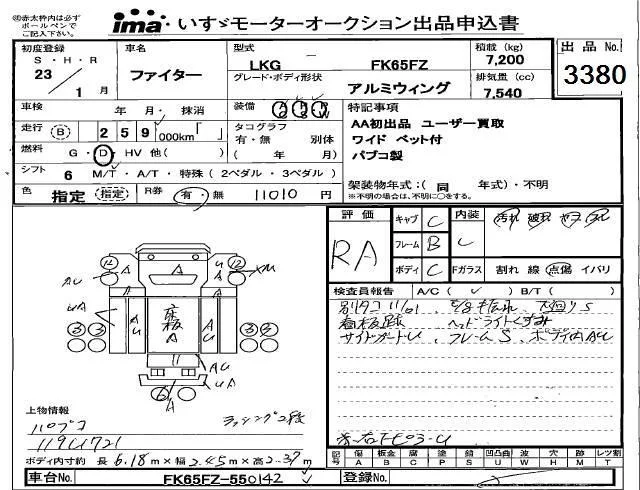 ※赤太枠内は必ず
ボールペンで
ご記入下さい。
ima いすゞモーターオークション出品申込書
初度登録 車名 型式 積載 (kg) 出品 No.
S・H・R LKG FK65FZ 7,200
23 1 月 ファイター グレード・ボディ形状 排気量 (cc) 3380
アルミウィング 7,540
車検 年 月・抹消 装備 A P W 特記事項
走行 (B) 2 5 9 000km「 」 タコグラフ AA初出品 ユーザー買取
有・無 別体 ワイド ベット付
燃料 G・D・HV 他( ) ( 年 月) パブコ製
シフト 6 M/T・A/T・特殊 ( 2ペダル・3ペダル )
架装物年式:( 同 年式)・不明
色 指定 (指定) R券 有・無 11010 円 ※不明の場合は、不明に○をする。
評価 キャブ C 内装 汚れ 破れ ヤケ スレ
RA フレーム B C
ボディ C Fガラス 割れ 線 点傷 イバリ
検査員報告 A/C ( ✓ ) B/T ( )
別タコ 11/01
看板跡 ヘッドライトくすみ
サイドガードU フレームS ボディ内AU
床板
上物情報
パブコ ラッシング2段
ボディ内寸約 長 6.18 m×幅 2.45 m×高 2.37 m
記号 傷 板金 腐 塗 錆 凹凸曲 波 穴 跡 レツ割
A B C P S U W H M T
車台No. FK65FZ-550142 登録No.